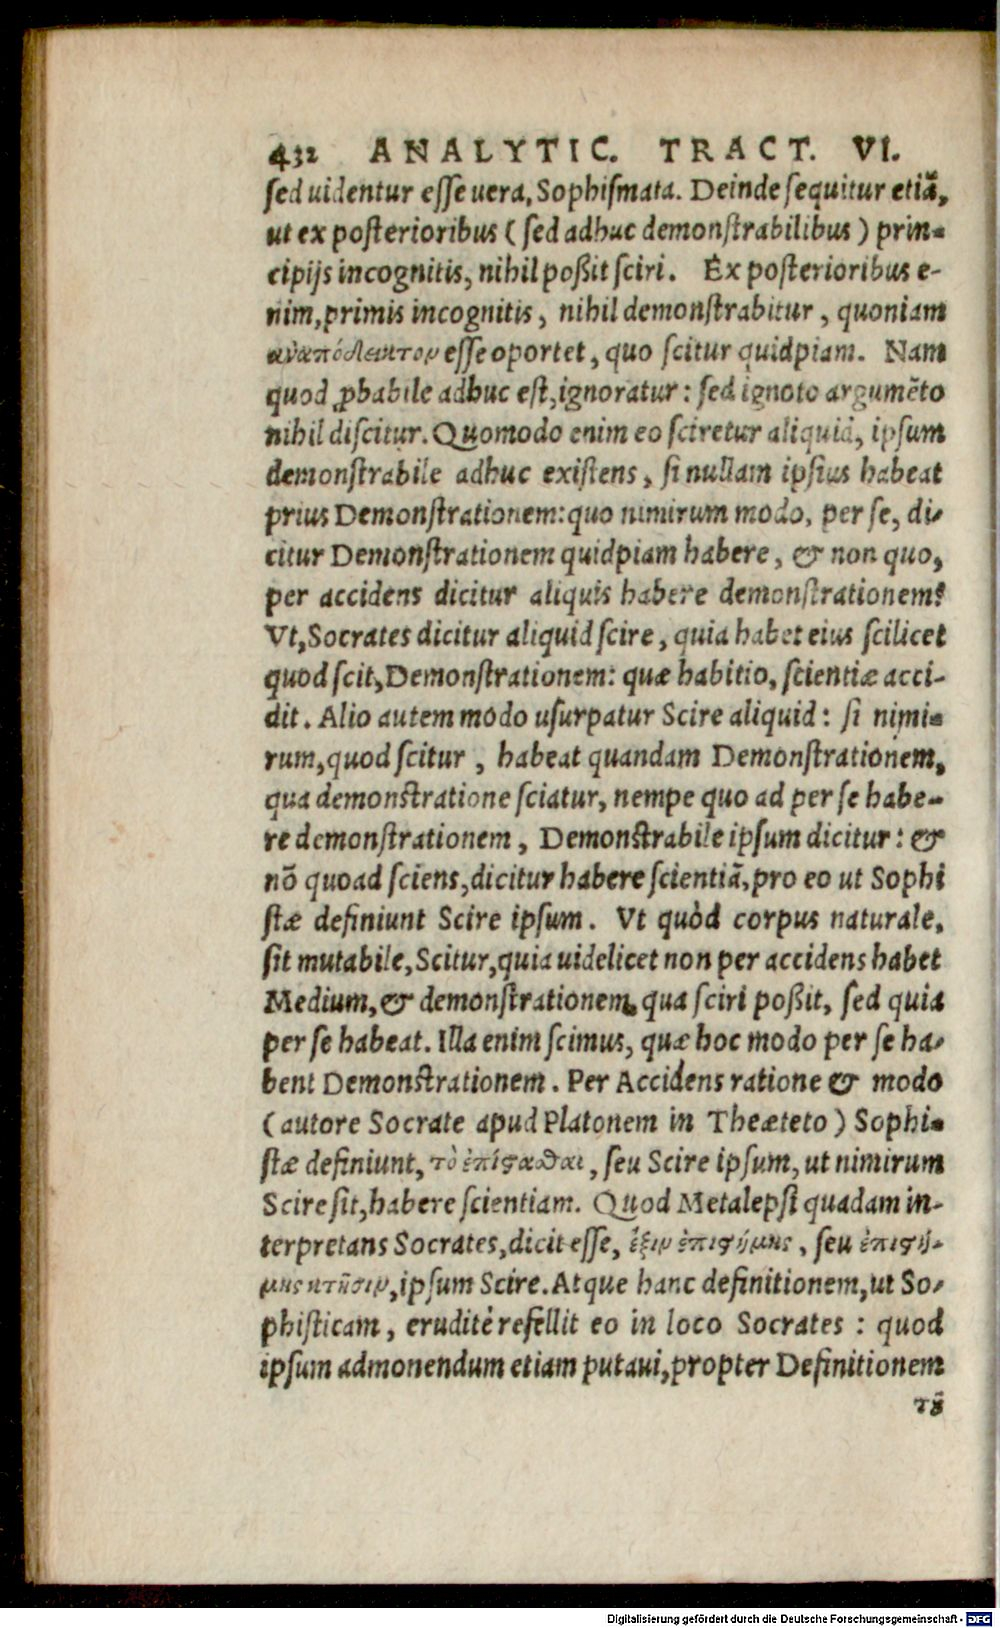 432 ANALYTIC. TRACT. VI.
sed uidentur esse uera, Sophismata. Deinde sequitur etiã,
ut ex posterioribus (sed adhuc demonstrabilibus) prin-
cipijs incognitis, nihil poßit sciri. Ex posterioribus e-
nim, primis incognitis, nihil demonstrabitur, quoniam
ἀναπόδεικτον esse oportet, quo scitur quidpiam. Nam
quod ꝓbabile adhuc est, ignoratur: sed ignoto argumẽto
nihil discitur. Quomodo enim eo sciretur aliquid, ipsum
demonstrabile adhuc existens, si nullam ipsius habeat
prius Demonstrationem: quo nimirum modo, per se, di-
citur Demonstrationem quidpiam habere, & non quo,
per accidens dicitur aliquis habere demonstrationem?
Vt, Socrates dicitur aliquid scire, quia habet eius scilicet
quod scit, Demonstrationem: quæ habitio, scientiæ acci-
dit. Alio autem modo usurpatur Scire aliquid: si nimi-
rum, quod scitur, habeat quandam Demonstrationem,
qua demonstratione sciatur, nempe quo ad per se habe-
re demonstrationem, Demonstrabile ipsum dicitur: &
nõ quoad sciens, dicitur habere scientiã, pro eo ut Sophi
stæ definiunt Scire ipsum. Vt quòd corpus naturale,
sit mutabile, Scitur, quia uidelicet non per accidens habet
Medium, & demonstrationem, qua sciri poßit, sed quia
per se habeat. Illa enim scimus, quæ hoc modo per se ha-
bent Demonstrationem. Per Accidens ratione & modo
(autore Socrate apud Platonem in Theæteto) Sophi-
stæ definiunt, τὸ ἐπίςαϑαι, seu Scire ipsum, ut nimirum
Scire sit, habere scientiam. Quod Metalepsi quadam in-
terpretans Socrates, dicit esse, ἕξιν ἐπιςήμης, seu ἐπιςή-
μης κτῆσιν, ipsum Scire. Atque hanc definitionem, ut So-
phisticam, eruditè refellit eo in loco Socrates: quod
ipsum admonendum etiam putaui, propter Definitionem
τȣ̃
Digitalisierung gefördert durch die Deutsche Forschungsgemeinschaft - DFG